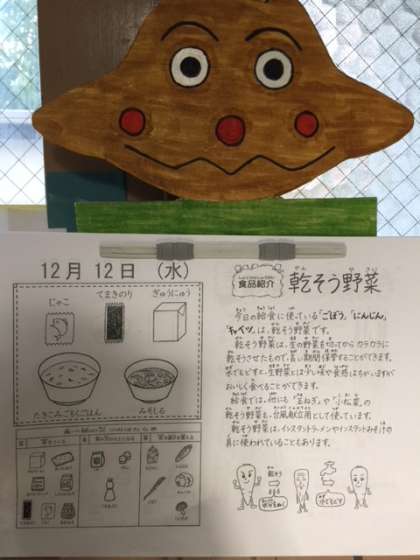 12月 12日 (水)
じゃこ
てまきのり
ぎゅうにゅう
たきこみごもくごはん
みそしる
食品紹介
乾そう野菜
今日の給食に使っている「ごぼう」「にんじん」
「キャベツ」は、乾そう野菜です。
乾そう野菜は、生の野菜を切ってからカラカラに
乾そうさせたもので、長い期間保管することができます。
水でもどすと、生野菜とはちがう味や食感はちがいますが
おいしく食べることができます。
給食では、他にも「玉ねぎ」や「小松菜」の
乾そう野菜を、台風献立用として使っています。
乾そう野菜は、インスタントラーメンやインスタントみそ汁の
具に使われていることもあります。
乾そう
水でもどす